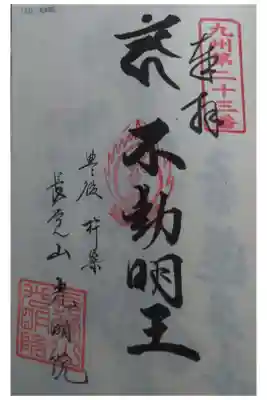 九州第二十三番
奉拝
不動明王
豊後 杵築
山 光明院